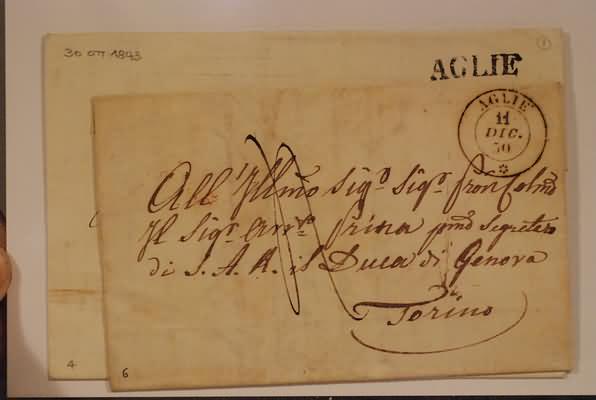 30 OTT 1843
1
AGLIE
AGLIE'
11
DIC.
50
All'Illmo Sigr. Sigr. Pron Colmo
Il Sigr. Avv.to Prina pmo Segretero
di S. A. R. il Duca di Genova
Torino
4
6